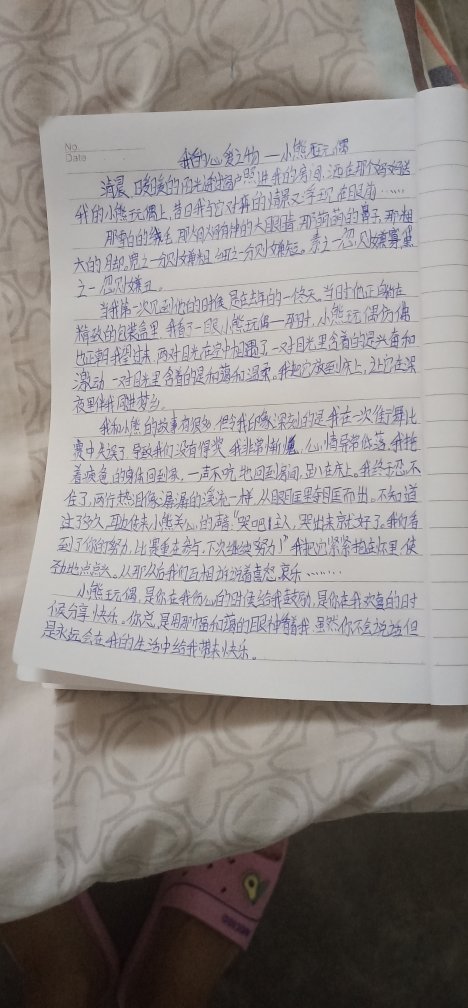 No.
Date
我的心爱之物——小熊玩偶
清晨,暖暖的阳光透过窗户照进我的房间,洒在那个
我的小熊玩偶上,昔日我与它对舞的情景又浮现在眼前……
那雪白的绒毛,那炯炯有神的大眼睛,那的鼻子,那粗
大的脚。宽之一分则嫌粗,细之一分则嫌短。素之一忽则嫌寡,黛
之一忽则嫌丑。
当我第一次见到他的时候,是在去年的一个冬天。当时他正躺在
精致的包装盒里,我看了一眼小熊玩偶——那时,小熊玩偶仿佛
也正朝我望过来,两对目光在空中相遇了,一对目光里含着的是兴奋和
激动,一对目光里含着的是和蔼和温柔。我把它放到床上,让它在深
夜里伴我同进梦乡。
我和小熊的故事有很多,但令我印象深刻的是我在一次街舞比
赛中失误了,导致我们没有得奖,我非常懊,心情异常低落,我拖
着疲惫的身体回到家,一声不吭地回到房间,趴在床上。我终于忍不
住了,两行热泪像潺潺的溪流一样,从眼眶里夺眶而出。不知道
过了多久,耳边传来小熊关心的声音:“哭吧!主人,哭出来就好了。我们看
到了你的努力,比赛重在参与,下次继续努力!”我把它紧紧抱在怀里,使
劲地点点头。从那以后我们互相诉说着喜怒哀乐………
小熊玩偶,是你在我伤心的时候给我鼓励,是你在我欢喜的时
候分享快乐。你总是用那幅和蔼的眼神看着我,虽然你不会说话,但
是永远会在我的生活中给我带来快乐。